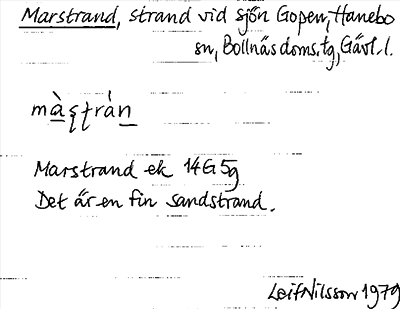 Marstrand, strand vid sjön Gopen, Hanebo
sn, Bollnäs doms.tg, Gävl. l.
màʂʈrán
Marstrand ek 14G5g
Det är en fin sandstrand.
Leif Nilsson 1979